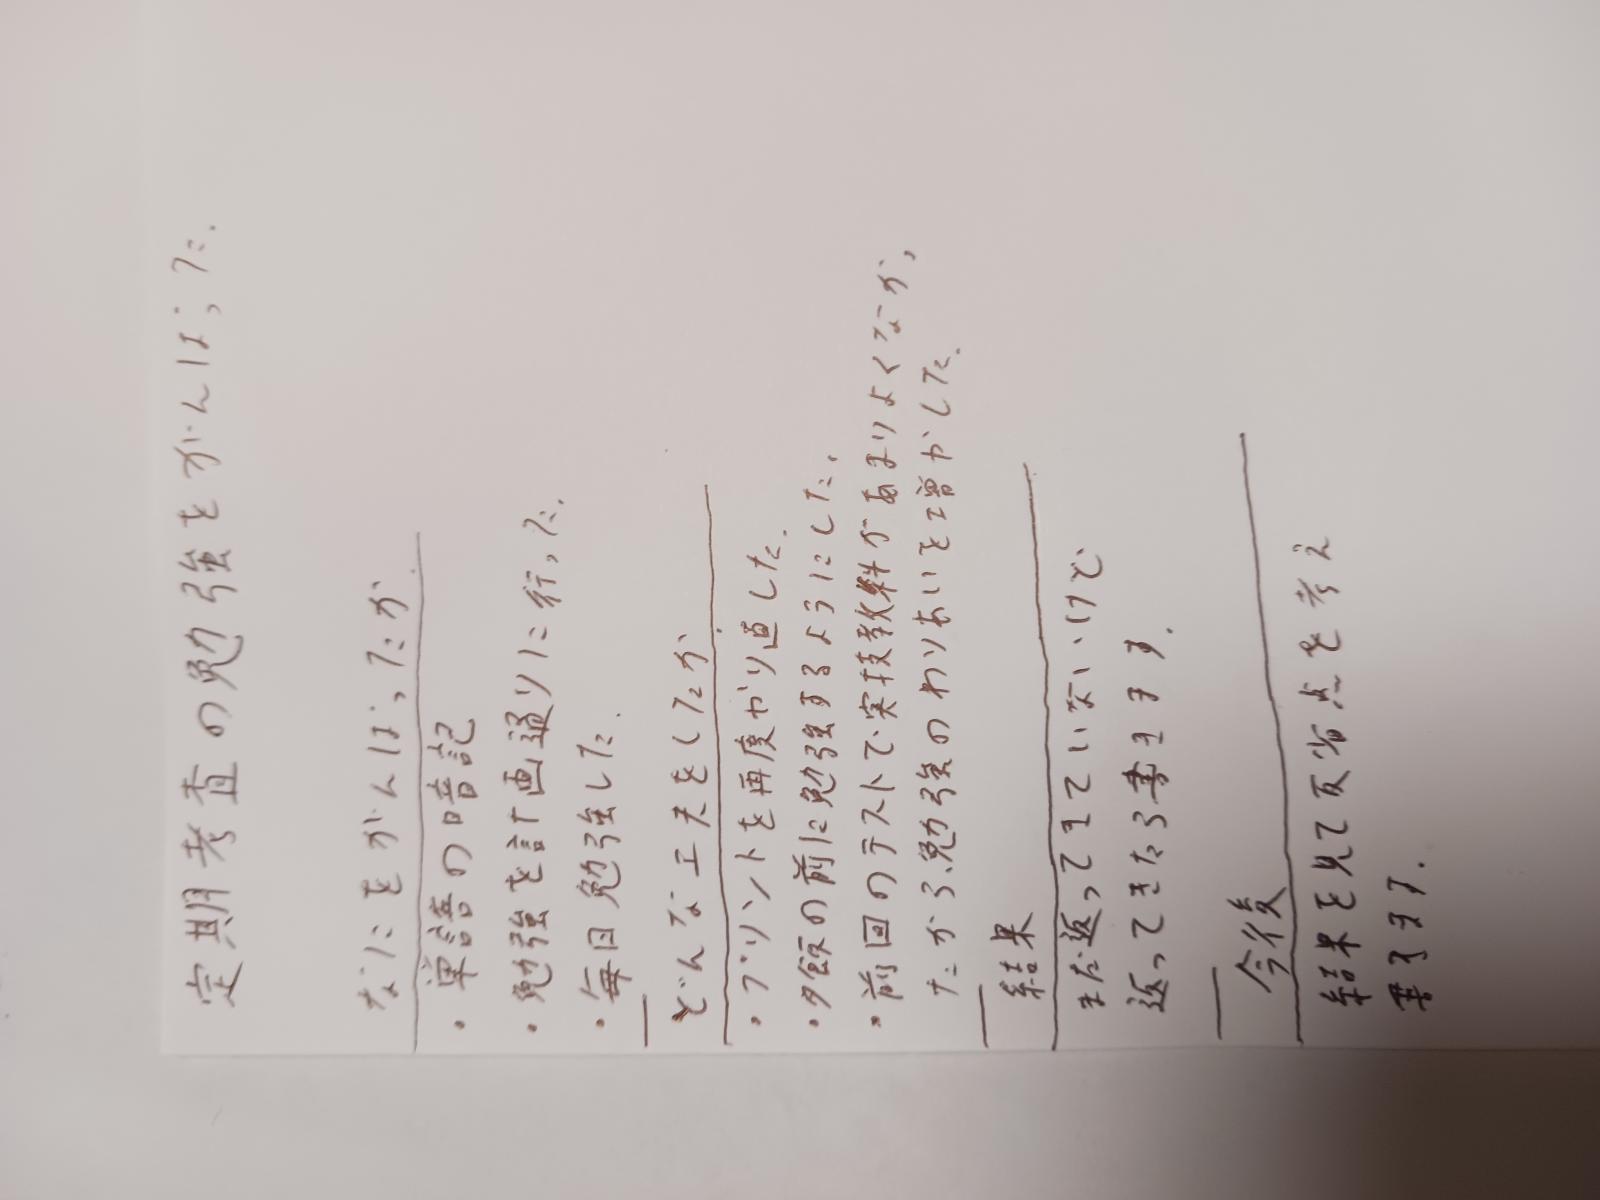 定期考査の勉強をがんばった.
なにをがんばったか
・単語の暗記
・勉強を計画通りに行った.
・毎日勉強した.
どんな工夫をしたか
・プリントを再度やり直した.
・夕飯の前に勉強するようにした.
・前回のテストで実技教科があまりよくなかっ
たから、勉強のわりあいを増やした.
結果
まだ返ってきていないけど
返ってきたら書きます.
今後
結果を見て反省点を考え
書きます.